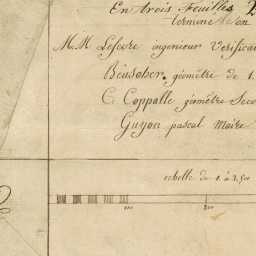 En trois feuilles
terminé
M. M Lefevre ingenieur Verifica
géomètre de 1.
C. Coppolle géomètre Seco
Guyon pascal Maire
echelle de 1. à 2,500
100 200